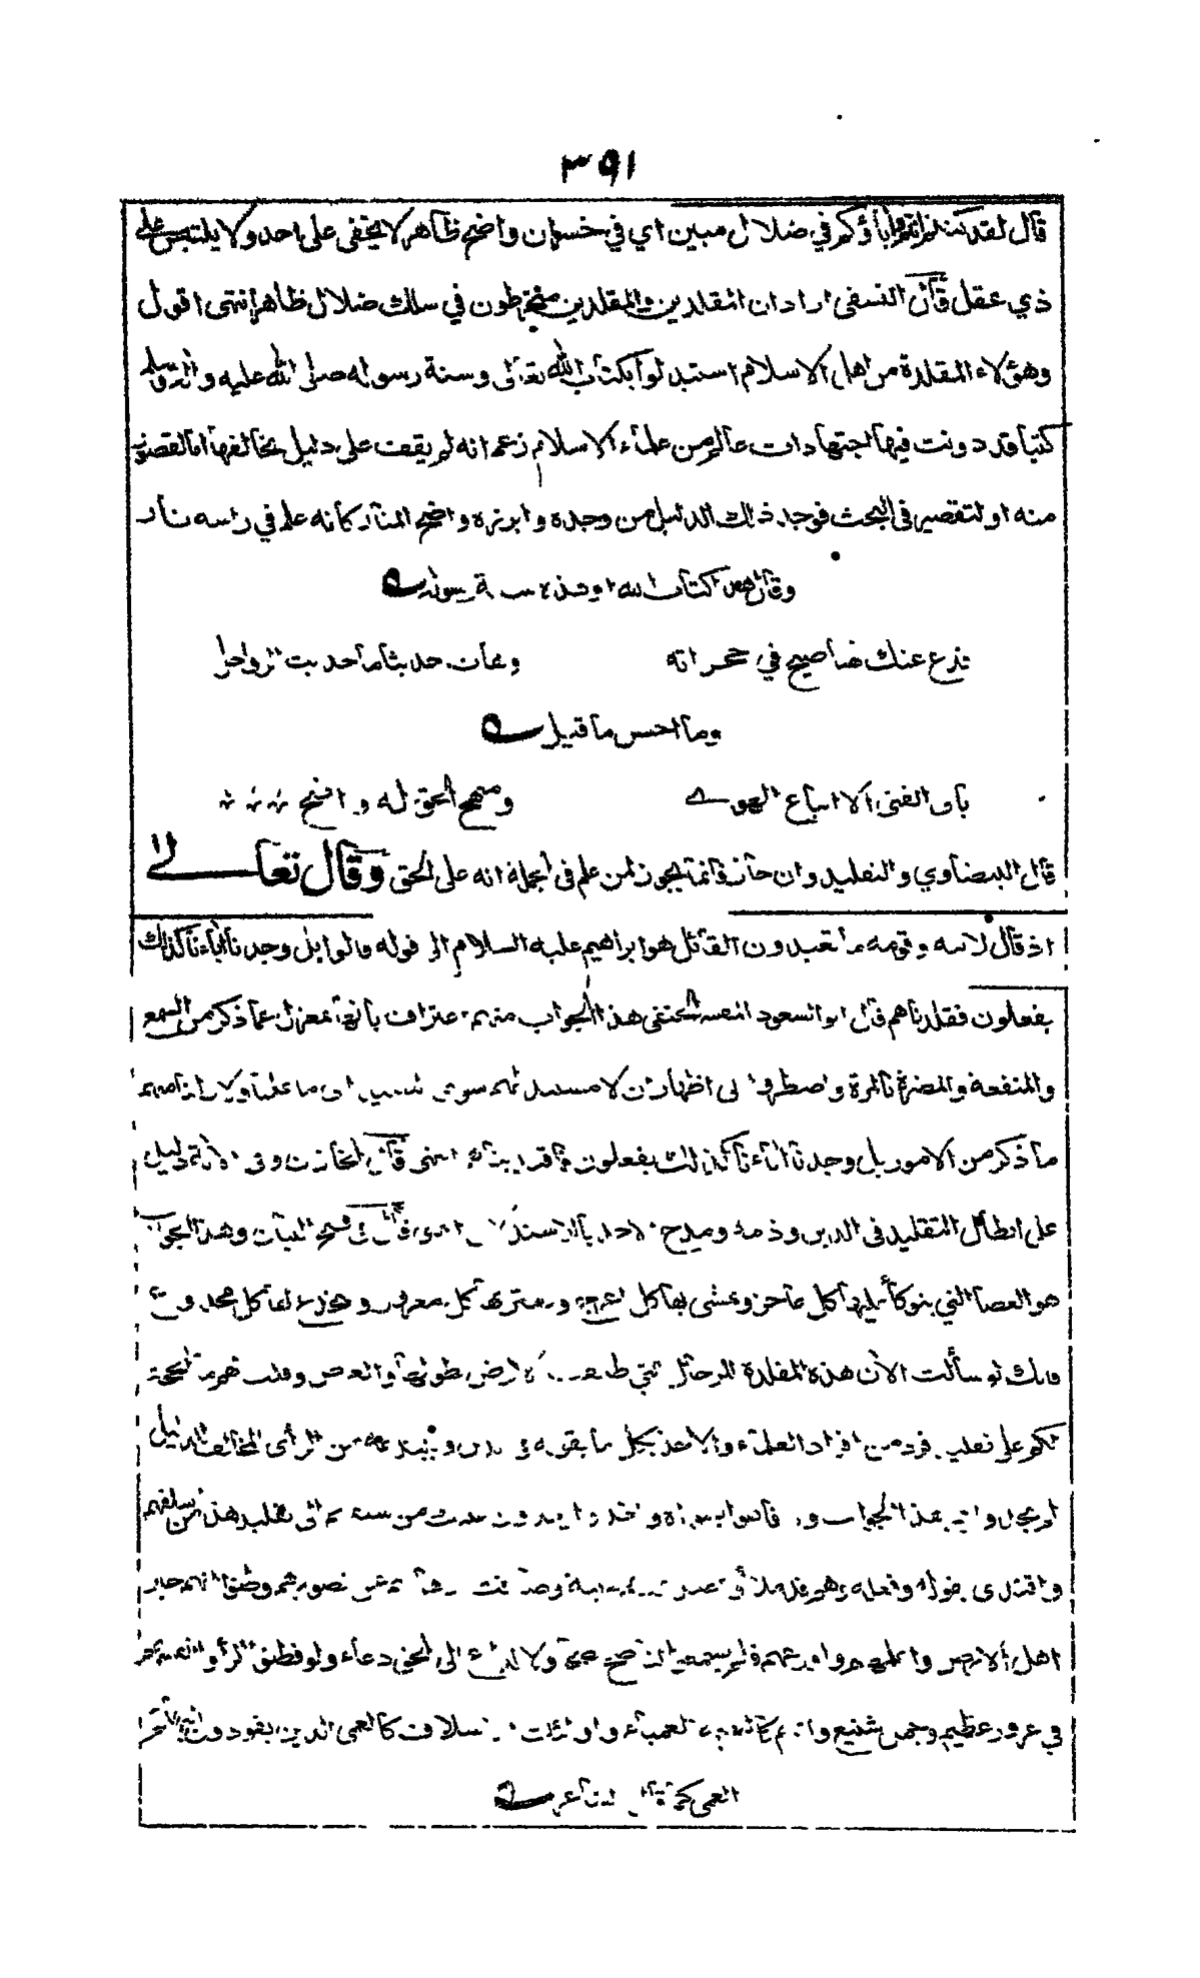 ٣٩١
قال لقد كنتم انتم وآباؤكم في ضلال مبين اي في خسران واضح ظاهر لا يخفى على احد ولا يلتبس على
ذي عقل قال النسفى اراد ان المقلدين والمقلدين منخرطون في سلك ضلال ظاهر انتهى اقول
وهؤلاء المقلدة من اهل الاسلام استبدلوا بكتاب الله تعالى وسنة رسوله صلى الله عليه واله وسلم
كتبا قد دونت فيها اجتهادات عالم من علماء الاسلام زعم انه لم يقف على دليل يخالفها اما لقصور
منه او لتقصير في البحث فوجد ذلك الدليل من وجده وابرزه واضح المنار كانه علم في راسه نار
وقال هذا كتاب الله او هذه سنة رسوله
فدع عنك نهبا صيح في حجراته
وهات حديثا ما حديث الرواحل
وما احسن ما قيل
يأبى الفتى الا اتباع الهوى
ومنهج الحق له واضح
قال البيضاوي والتقليد وان جاز فانما يجوز لمن علم في الجملة انه على الحق وقال تعالى
اذ قال لابيه وقومه ما تعبدون القائل هو ابراهيم عليه السلام الى قوله قالوا بل وجدنا آباءنا كذلك
يفعلون فقلدناهم قال ابو السعود المفسر الحنفى هذا الجواب منهم اعتراف بانها بمعزل عما ذكر من السمع
والمنفعة والمضرة بالمرة واضطروا الى اظهار ان لا مستند لهم سوى التقليد اى ما علمنا ولا راينا منهم
ما ذكر من الامور بل وجدنا آباءنا كذلك يفعلون فاقتدينا بهم انتهى قال الخازن وفى الآية دليل
على ابطال التقليد فى الدين وذمه ومدح الاخذ بالاستدلال انتهى قال في فتح البيان وهذا الجواب
هو العصا التي يتوكأ عليها كل عاجز ويمشى بها كل اعرج ويغتر بها كل مغرور وينخدع لها كل مخدوع
فانك لو سألت الآن هذه المقلدة للرجال التي طبقت الارض بطولها والعرض وقلت لهم ما الحجة
لكم على تقليد فرد من افراد العلماء والاخذ بكل ما يقوله في الدين ويبتدعه من الرأى المخالف للدليل
لم يجدوا غير هذا الجواب ولا فاهوا بسواه واخذوا يعددون عليك من سبقهم الى تقليد هذا من سلفهم
واقتدى بقوله وفعله وهم قد ملأ
اهل الارض واعلمهم واورعهم فلم يسمعوا لناصح نصحا ولا لداع الى الحق دعاء ولو فطنوا لرأوا انفسهم
في غرور عظيم وجهل شنيع وانهم كالبهيمة العمياء واولئك الاسلاف كالعمى الذين يقودون البهائم
العمى كما قال الشاعر